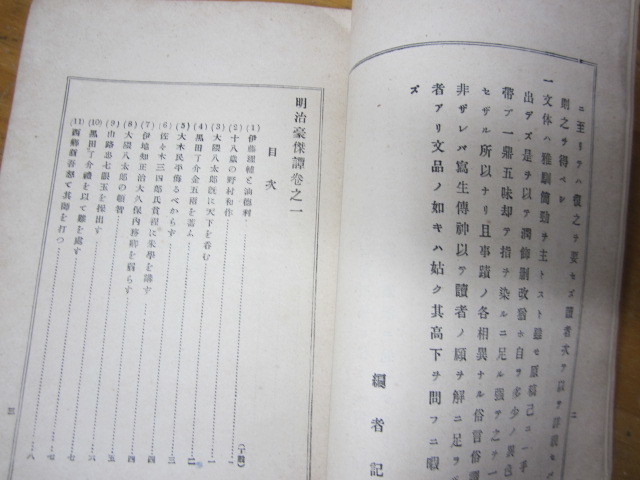 ニ至リテハ復之ヲ要セズ讀者次ヲ以テ
則之ヲ得ベシ
一文体ハ雅馴簡勁ヲ主トスト雖モ原稿已ニ一手
出デズ是ヲ以テ潤飾刪改猶ホ自ラ多少ノ異色
帶ブ一鼎五味却テ指ヲ染ルニ足ル強テ之ヲ一
セザル所以ナリ且事蹟ノ各相異ナル俗言俗謂
非ザレバ寫生傳神以テ讀者ノ頤ヲ解ニ足ラ
者アリ文品ノ如キハ姑ク其高下ヲ問フニ暇
ズ
編者記
二
明治豪傑譚卷之一
目次
(1) 伊藤 油德利 (丁數) 一
(2) 十八歳の野村和作 一
(3) 大隈八太郎既に天下を呑む 一
(4) 黒田了介金五兩を蓄ふ 二
(5) 大木民平侮るべからず 二
(6) 佐々木三四郎氏貧裡に米學を講ず 三
(7) 伊地知正治大久保内務卿を弱らす 四
(8) 大隈八太郎の頓智 四
(9) 由路忠七銀玉を掘出す 五
(10) 黒田了介禮を以て雛を處す 六
(11) 西郷吾怒て其卿を打つ 七
八
三